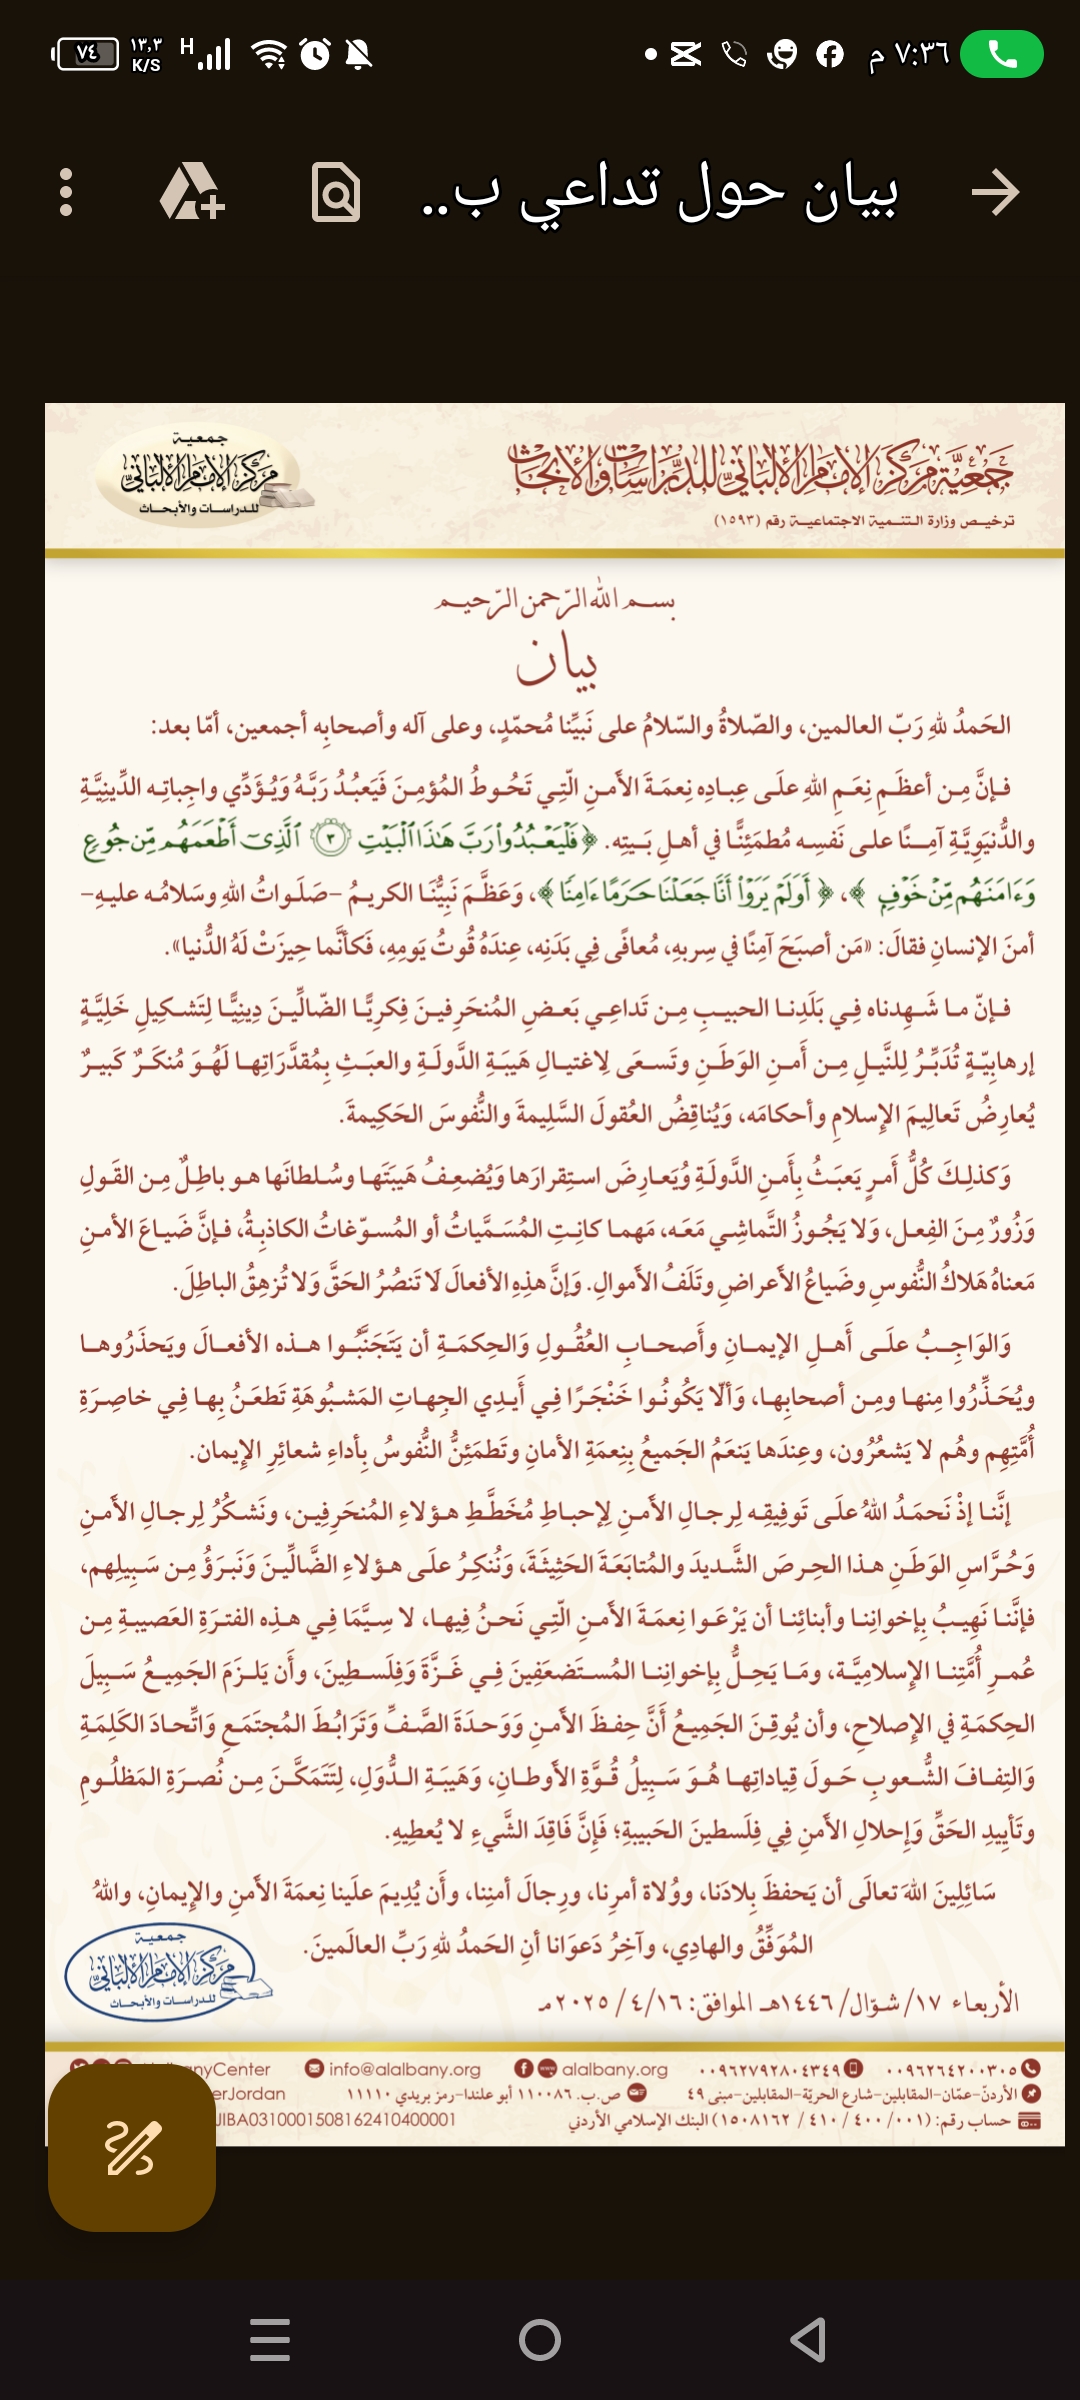 ٧:٣٦ م
H
١٣,٣
K/S
٧٤
بيان حول تداعي ب..
جمعية مركز الإمام الألباني للدراسات والأبحاث
ترخيـص وزارة الـتنـمية الاجتماعيـة رقم (١٥٩٣)
جمعية
مركز الإمام الألباني
للدراسـات والأبحـاث
بسـم الله الرّحمن الرّحيـم
بيان
الحَمدُ للهِ رَبّ العالمين، والصّلاةُ والسّلامُ على نَبيِّنا مُحمّدٍ، وعلى آله وأصحابِه أجمعين، أمّا بعد:
فـإنَّ مِـن أعظَـمِ نِعَـمِ اللهِ علَـى عِبـادِه نِعمَـةَ الأمـنِ الّتِـي تَحُـوطُ المُؤمِـنَ فَيَعبُـدُ رَبَّـهُ وَيُـؤَدِّي واجِباتِـه الدِّينِيَّـةِ
والدُّنيَوِيَّـةِ آمِـنًا علـى نَفسِـه مُطمَئِنًّـا في أهـلِ بَـيتِه. ﴿فَلْيَعْبُدُوا۟ رَبَّ هَـٰذَا ٱلْبَيْتِ ٣ ٱلَّذِىٓ أَطْعَمَهُم مِّن جُوعٍ
وَءَامَنَهُم مِّنْ خَوْفٍۭ﴾، ﴿أَوَلَمْ يَرَوْا۟ أَنَّا جَعَلْنَا حَرَمًا ءَامِنًا﴾، وَعَظَّـمَ نَبِيُّنَـا الكريـمُ -صَلَـواتُ اللهِ وسَلامُـه عليـهِ-
أمنَ الإنسانِ فقالَ: «مَن أصبَحَ آمِنًا في سِربهِ، مُعافًى فِي بَدَنِه، عِندَهُ قُوتُ يَومِهِ، فَكأنَّما حِيزَتْ لَهُ الدُّنيا».
فـإنّ مـا شَـهِدناه فِـي بَلَدِنـا الحبيـبِ مِـن تَداعِـي بَعـضِ المُنحَرِفيـنَ فِكرِيًّـا الضّالِّيـنَ دِينِيًّـا لِتَشـكيلِ خَلِيَّـةٍ
إرهابِيّـةٍ تُدَبِّـرُ لِلنَّيـلِ مِـن أمـنِ الوَطَـنِ وتَسـعَى لِاغتيـالِ هَيبَـةِ الدَّولَـةِ والعبَـثِ بِمُقدَّرَاتِهـا لَهُـوَ مُنكَـرٌ كَبيـرٌ
يُعارِضُ تَعالِيمَ الإسلامِ وأحكامَه، وَيُناقِضُ العُقولَ السَّلِيمةَ والنُّفوسَ الحَكِيمةَ.
وَكذلِـكَ كُلُّ أَمـرٍ يَعبَـثُ بِأَمـنِ الدَّولَـةِ وُيَعـارِضَ اسـتِقرارَها وَيُضعِـفُ هَيبَتَهـا وسُـلطانَها هـو باطِـلٌ مِـن القَـولِ
وَزُورٌ مِـنَ الفِعـل، وَلا يَجُـوزُ التَّماشِـي مَعَـه، مَهمـا كانـتِ المُسَـمَّياتُ أو المُسـوّغاتُ الكاذبـةُ، فـإنَّ ضَيـاعَ الأمـنِ
مَعناهُ هَلاكُ النُّفوسِ وضَياعُ الأعراضِ وتَلَفُ الأموالِ. وَإنَّ هذِهِ الأفعالَ لَا تَنصُرُ الحَقَّ وَلا تُزهِقُ الباطِلَ.
وَالوَاجِـبُ علَـى أَهـلِ الإيمـانِ وأَصحـابِ العُقُـولِ وَالحِكمَـةِ أن يَتَجَنَّبُـوا هـذه الأفعـالَ ويَحذَرُوهـا
ويُحَـذِّرُوا مِنهـا ومِـن أصحابِهـا، وَألّا يَكُونُـوا خَنْجَـرًا فِـي أَيـدِي الجِهـاتِ المَشـبُوهَةِ تَطعَـنُ بِهـا فِـي خاصِـرَةِ
أُمَّتِهِم وهُم لا يَشعُرُون، وعِندَها يَنعَمُ الجَميعُ بِنِعمَةِ الأمانِ وتَطمَئِنُّ النُّفوسُ بِأداءِ شعائِرِ الإيمان.
إنَّنـا إذْ نَحمَـدُ اللهُ علَـى تَوفِيقِـه لِرجـالِ الأمـنِ لِإحبـاطِ مُخَطَّـطِ هـؤلاءِ المُنحَرِفِيـن، ونَشـكُرُ لِرجـالِ الأمـنِ
وَحُـرَّاسِ الوَطَـنِ هـذا الحِـرصَ الشَّـديدَ والمُتابَعَـةَ الحَثِيثَـةَ، وَنُنكِـرُ علَـى هـؤلاءِ الضَّالِّيـنَ وَنَبـرَؤُ مِـن سَـبِيلِهم،
فإنَّنـا نَهِيـبُ بِإخوانِنـا وأبنائِنـا أن يَرْعَـوا نِعمَـةَ الأمـنِ الّتِـي نَحـنُ فِيهـا، لا سِـيَّمَا فِـي هـذِه الفتـرَةِ العَصيبـةِ مِـن
عُمـرِ أُمَّتِنـا الإسلامِيَّـة، ومَـا يَحِـلُّ بِإخوانِنـا المُسـتَضعَفِينَ فِـي غَـزَّةَ وَفِلَسـطِينَ، وأن يَلـزَمَ الجَمِيـعُ سَـبِيلَ
الحِكمَـةِ في الإصلاحِ، وأن يُوقِـنَ الجَمِيـعُ أَنَّ حِفـظَ الأمـنِ وَوَحـدَةَ الصَّـفِّ وَتَرَابُـطَ المُجتَمَـعِ وَاتِّحـادَ الكَلِمَـةِ
وَالتِفـافَ الشُّـعوبِ حَـولَ قِياداتِهـا هُـوَ سَـبِيلُ قُـوَّةِ الأوطـانِ، وَهَيبَـةِ الـدُّوَلِ، لِنَتَمَكَّـنَ مِـن نُصـرَةِ المَظلُـومِ
وتَأيِيدِ الحَقِّ وَإحلالِ الأمنِ فِي فِلَسطينَ الحَبيبةِ؛ فَإنَّ فَاقِدَ الشَّيءِ لا يُعطِيهِ.
سَائِلِينَ اللهَ تعالَى أن يَحفظَ بِلادَنا، ووُلاةَ أمرِنا، ورِجالَ أمنِنا، وأَن يُدِيمَ علَينا نِعمَةَ الأمنِ والإيمانِ، واللهُ
المُوَفِّقُ والهادِي، وآخِرُ دَعوَانا أنِ الحَمدُ للهِ رَبِّ العالَمينَ.
الأربعاء ١٧/ شـوّال/ ١٤٤٦هـ الموافق: ١٦/ ٤/ ٢٠٢٥مـ
جمعية
مركز الإمام الألباني
للدراسـات والأبحـاث
٠٠٩٦٢٦٤٢٠٠٣٠٥ ٠٠٩٦٢٧٩٢٨٠٤٣٤٩ alalbany.org info@alalbany.org nyCenter
الأردنّ-عمّان-المقابلين-شارع الحريّة-المقابلين-مبنى ٤٩ ص.ب. ١١٠٠٨٦ أبو علندا-رمز بريدي ١١١١٠ erJordan
حساب رقم: (٠٠١/ ٤٠٠/ ٤١٠/ ١٥٠٨١٦٢) البنك الإسلامي الأردني JIBA0310001508162410400001